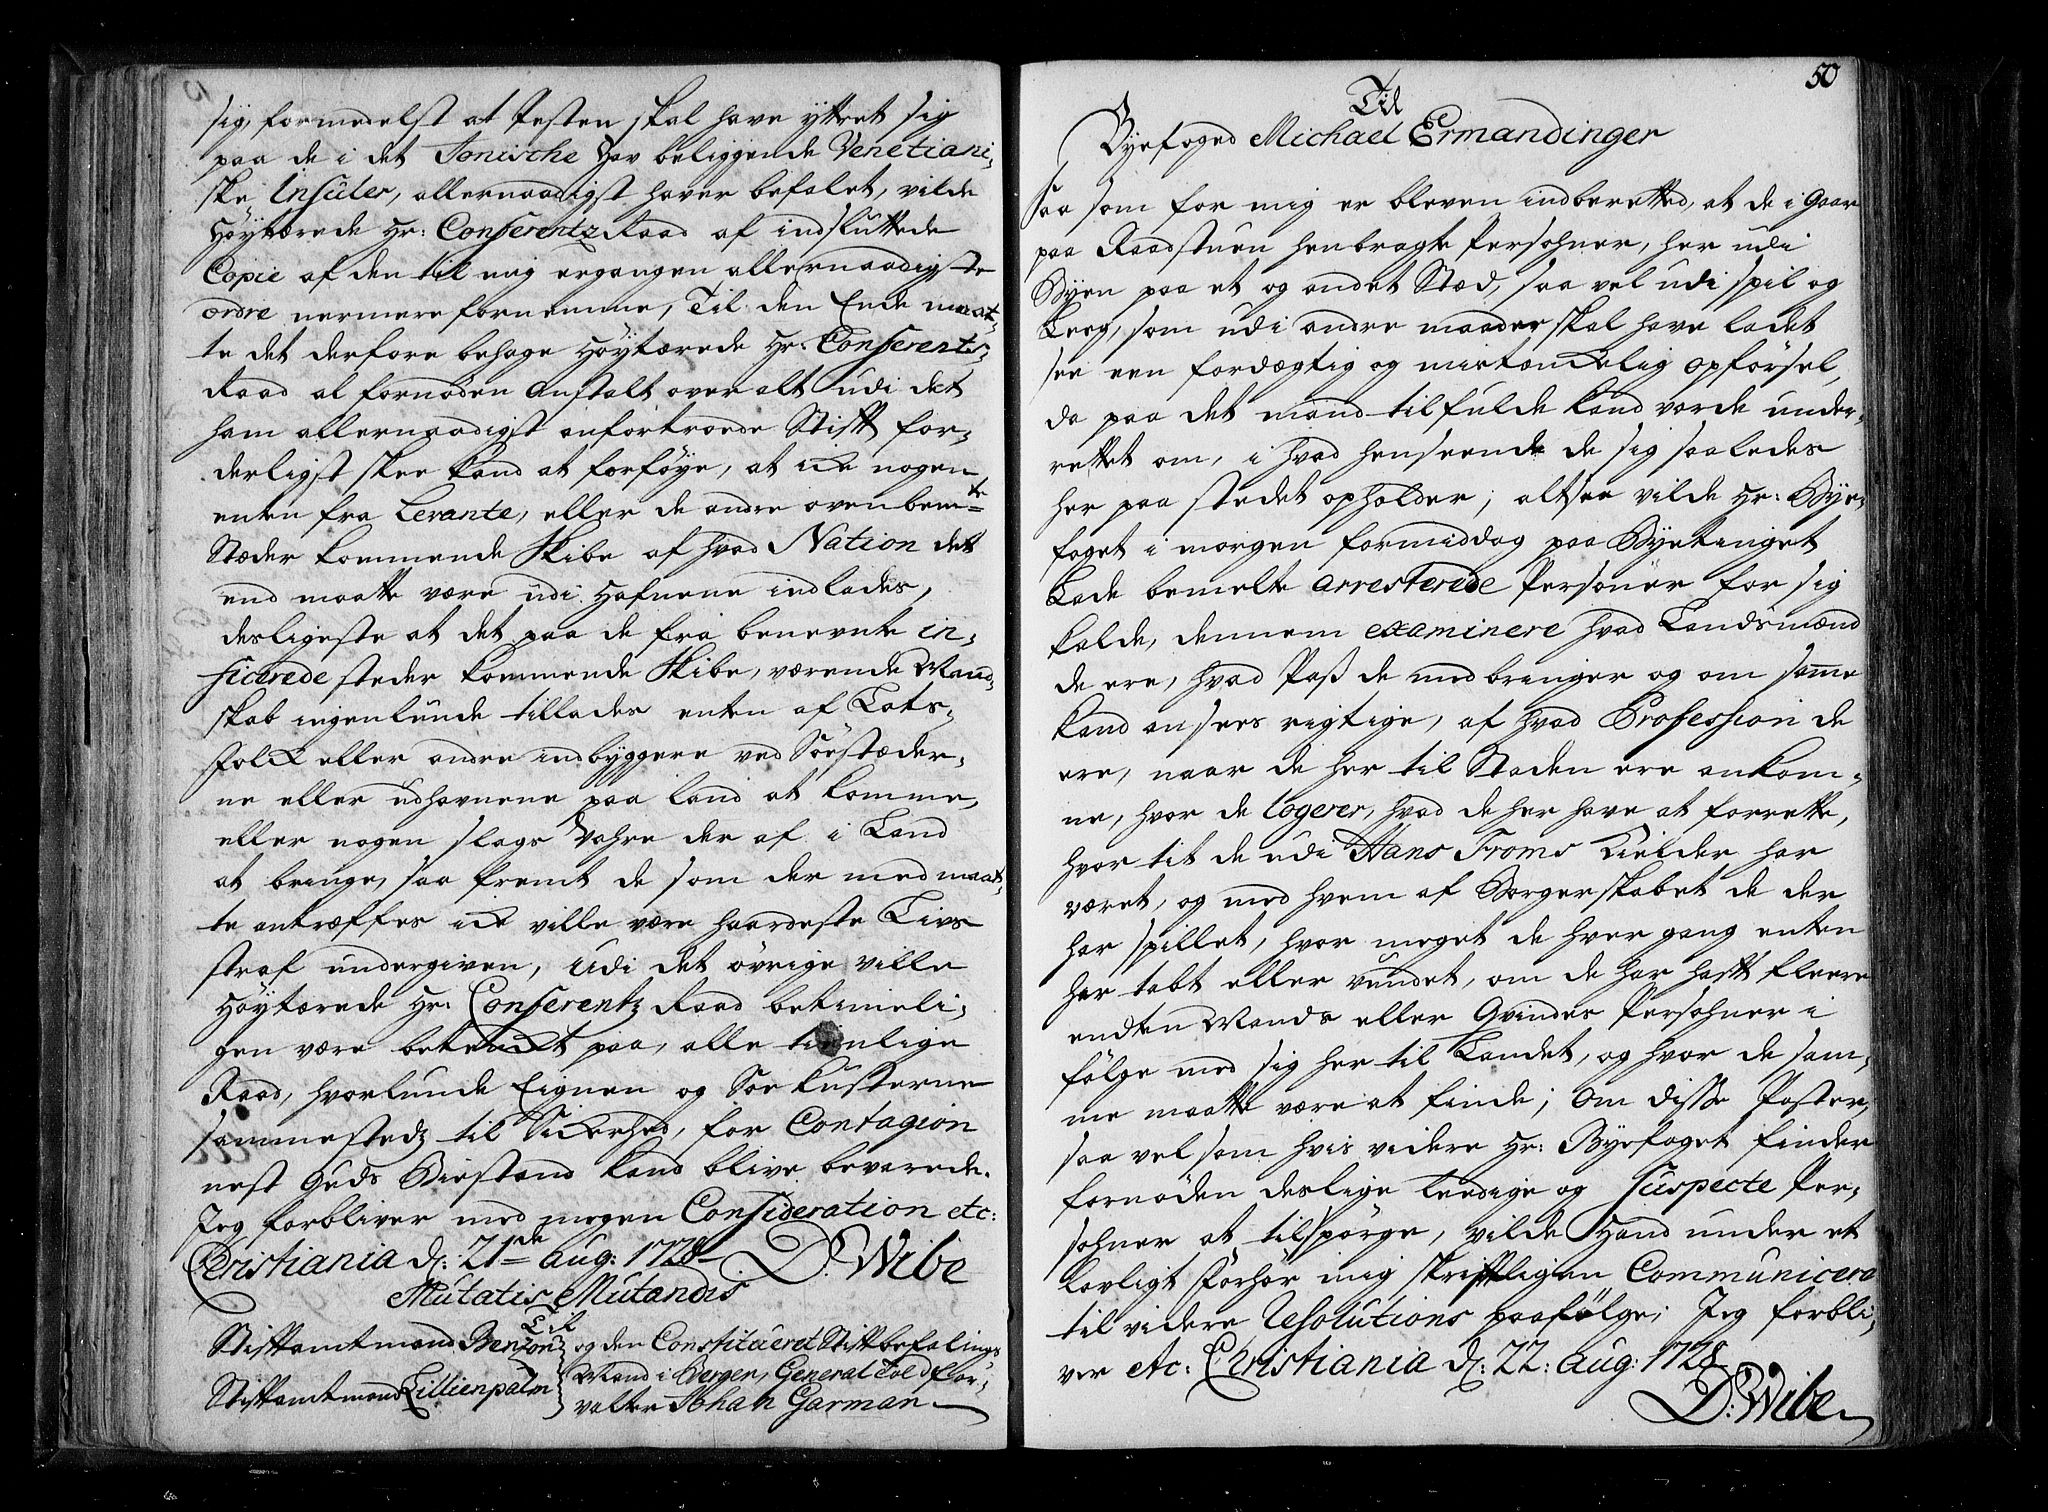 sig, formedelst at Pesten skal have yttret sig
paa de i det Jonische Hav beliggende Venetiani-
ske Insuler, allernaadigst haver befalet, vilde
Høytærede Hr: Conferentz Raad af indsluttede
Copie af den til mig ergangen allernaadigste
ordre nermere fornemme, Til den Ende maat-
te det derfore behage Høytærede Hr: Conferentz
Raad al fornøden Anstalt over alt udi det
ham allernaadigst anfortroede Stift for-
derligst skee kand at forføye, at icke nogen
enten fra Levante, eller de andre ovenbemte
Stæder kommende Skibe af hvad Nation det
end maatte være udi Hafnene indlades,
desligeste at det paa de fra benevnte in-
ficerede steder kommende Skibe, værende Mand-
skab ingenlunde tillades enten af Lots-
folck eller andre indbyggere ved Søestæder-
ne eller udhavnene paa land at komme,
eller nogen slags Vahre der af i Land
at bringe, saa fremt de som der med maat-
te antræffes icke ville være haardeste Livs
straf undergiven, Udi det øvrige ville
Høytærede Hr: Conferentz Raad betimeli-
gen være betenckt paa, alle tienlige
Raad, hvorlunde Eignen og Søe Kusterne
sammestedz til Sickerhed, for Contagion
nest Guds Biestand kand blive bevarede.
Jeg forbliver med megen Consideration etc:
Christiania d: 21de aug: 1728 D: Wibe
Mutatis Mutandis
Til
Stiftamtmand Benzon og den Constitueret Stiftbefalings
Mand i Bergen, General Told for-
Stiftamtmand Lillienpalm valter Johan Garman
50
Til
Byefoged Michael Ermandinger
Saa som for mig er bleven indberetted, at de i Gaar
paa Raadstuen henbragte Persohner, her udi
Byen paa et og andet Stæd, saa vel udi spil og
Leeg, som udi andre maader skal have ladet
see een fordægtig og mistenckelig opførsel,
da paa det mand tilfulde kand vorde under-
rettet om, i hvad henseende de sig saaledes
her paa stedet opholder; altsaa vilde Hr: Bye-
foget i morgen formiddag paa Byetinget
Lade bemelte arresterede Personer for sig
kalde, dennem examinere hvad Landsmænd
de ere, hvad Pass de medbringer og om samme
kand ansees rigtige, af hvad Profession de
ere, naar de her til Staden ere ankom-
ne, hvor de logerer, hvad de her have at forrette,
hvor tit de udi Hans Froms Kielder har
været, og med hvem af Borgerskabet de der
har spillet, hvor meget de hver gang enten
har tabt eller vundet, om de har hafft fleere
endten Mands eller Qvindes Persohner i
følge med sig her til Landet, og hvor de sam-
me maatte være at finde; Om disse Poster,
saa vel som hvis videre Hr: Byefoget finder
fornøden deslige leedige og suspecte Per-
sohner at tilspørge, vilde Hand under et
lovligt Forhør mig skriftligen Communicere
til videre Resolutions paafølge; Jeg forbli-
ver etc: Christiania d: 22: aug: 1728
D: Wibe